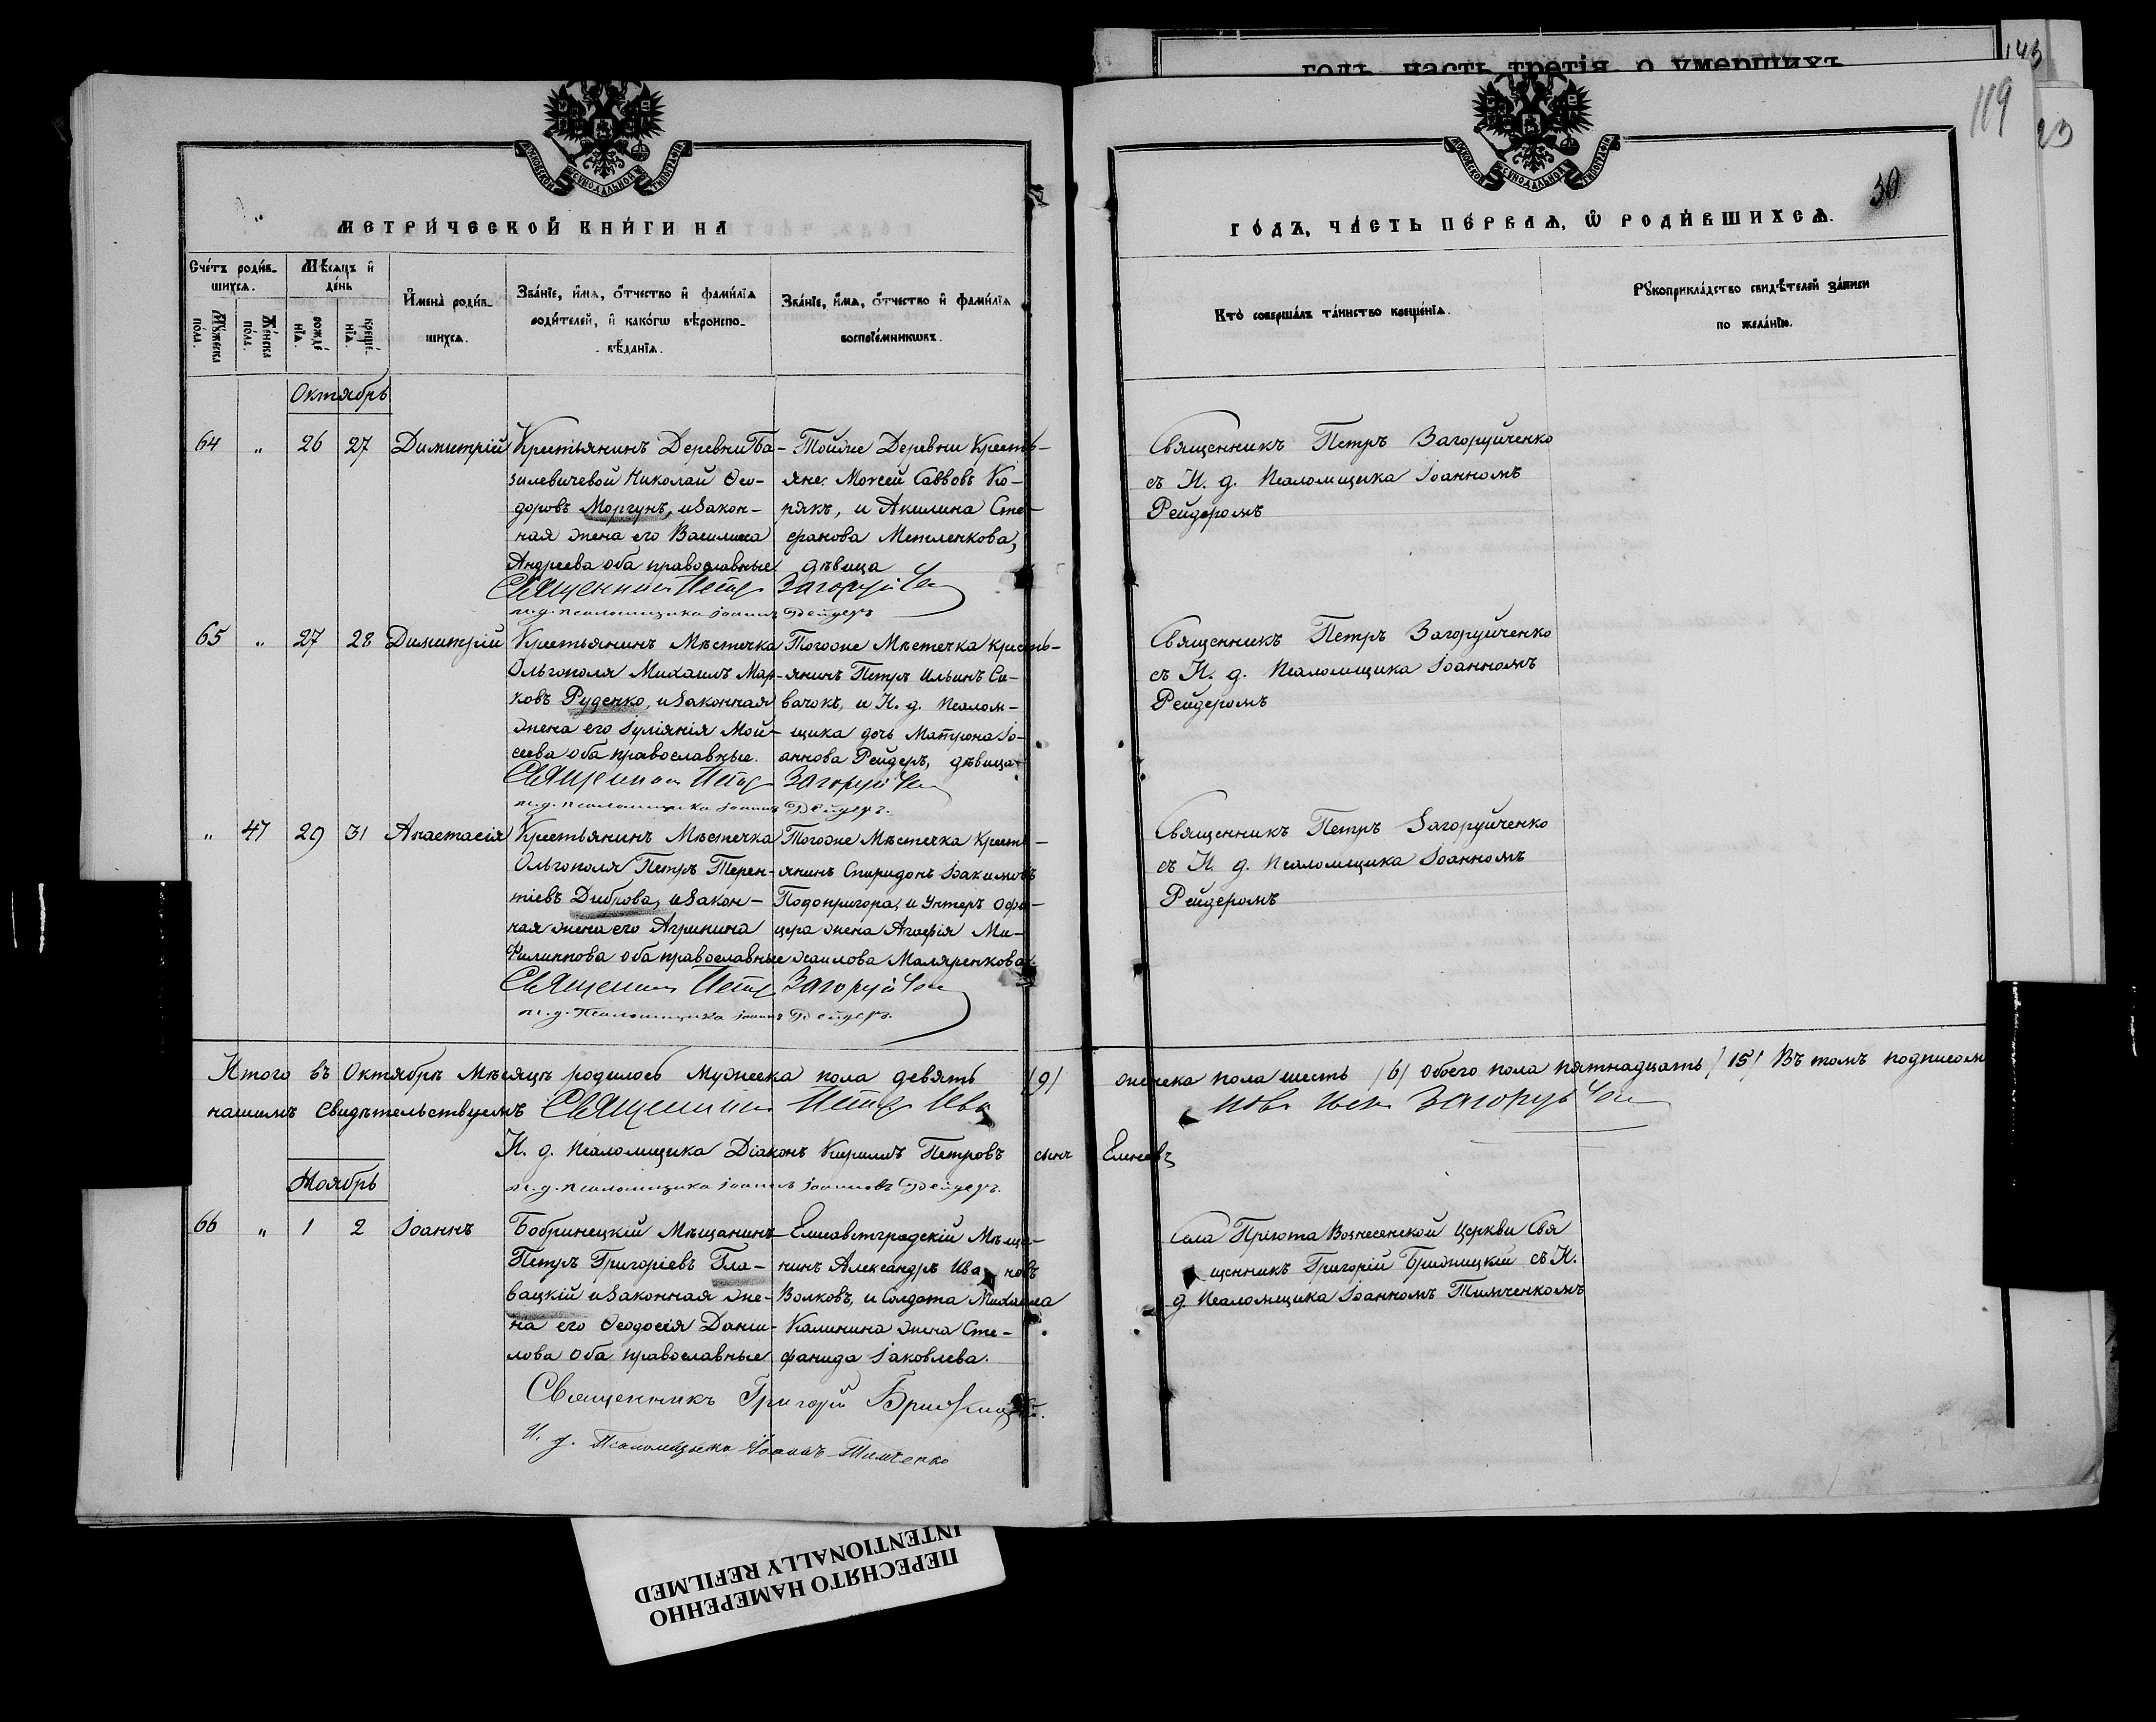 годъ, часть третія, о умершихъ
143
119
23
МОСКОВСКОЙ СѴНОДАЛЬНОЙ ТИПОГРАФІИ
МОСКОВСКОЙ СѴНОДАЛЬНОЙ ТИПОГРАФІИ
30
МЕТРИ́ЧЕСКОЙ КНИ́ГИ НА
ГО́ДЪ, ЧА́СТЬ ПЕ́РВАѦ, Ѽ РОДИ́ВШИХСѦ.
Сче́тъ роди́в-
шихсѧ.
Мꙋ́жеска по́ла.
Же́нска по́ла.
Мѣ́сѧцъ и҆
де́нь
рожде́нїѧ.
креще́нїѧ.
И҆мена̀ роди́в-
шихсѧ.
Зва́нїе, и҆́мѧ, ѻ҆́тчество и҆ фами́лїѧ
роди́телей, и҆ како́гѡ вѣроиспо-
вѣ́данїѧ.
Зва́нїе, и҆́мѧ, ѻ҆́тчество и҆ фами́лїѧ
воспрїе́мникѡвъ.
Кто̀ соверша́лъ та́инство креще́нїѧ.
Рꙋкоприкла́дство свидѣ́телей за́писи
по жела́нїю.
Октябрь
64 " 26 27 Димитрій
Крестьянинъ Деревни Ба-
зилевичевой Николай Ѳео-
доровъ Моргунъ, и закон-
ная жена его Василиса
Андреева оба православные
Тойже Деревни Кресть-
яне: Моѵсей Саввовъ Ко-
рякъ, и Акилина Сте-
фанова Метленкова,
дѣвица
Священникъ Петръ Загоруйченко
съ И. д. Псаломщика Іоанномъ
Рейдеромъ
Священникъ Петръ Загоруйченко
и. д. псаломщика Іоаннъ Рейдеръ
65 " 27 28 Димитрій
Крестьянинъ Мѣстечка
Ольгополя Михаилъ Мар-
ковъ Руденко, и законная
жена его Іуліянія Мой-
сеева оба православные.
Тогоже Мѣстечка Кресть-
янинъ Петръ Ильинъ Си-
вачокъ, и И. д. Псалом-
щика дочь Матрона Іо-
аннова Рейдеръ, дѣвица
Священникъ Петръ Загоруйченко
съ И. д. Псаломщика Іоанномъ
Рейдеромъ
Священникъ Петръ Загоруйченко
и. д. псаломщика Іоаннъ Рейдеръ.
" 47 29 31 Анастасія
Крестьянинъ Мѣстечка
Ольгополя Петръ Терен-
тіевъ Диброва, и закон-
ная жена его Агрипина
Филиппова оба православные
Тогоже Мѣстечка Кресть-
янинъ Спиридонъ Іакимовъ
Подопригора, и Унтеръ Офи-
цера жена Агафія Ми-
хаилова Маляренкова.
Священникъ Петръ Загоруйченко
съ И. д. Псаломщика Іоанномъ
Рейдеромъ
Священникъ Петръ Загоруйченко
и. д. псаломщика Іоаннъ Рейдеръ.
Итого въ Октябрѣ Мѣсяцѣ родилось Мужеска пола девять /9/ женска пола шесть /6/ обоего пола пятнадцать /15/ Въ томъ подписомъ
нашимъ свидѣтельствуемъ Священникъ Петръ Загоруйченко
И. д. Псаломщика Діаконъ Кириллъ Петровъ сынъ
и. д. псаломщика Іоаннъ Іоанновъ Рейдеръ.
Ноябрь
66 " 1 2 Іоаннъ
Бобринецкій Мѣщанинъ
Петръ Григоріевъ Гла-
вацкій и законная же-
на его Ѳеодосія Даніи-
лова оба православные
Елисаветградскій Мѣща-
нинъ Александръ Ивановъ
Волковъ, и Солдата Михаила
Калинина жена Сте-
фанида Іаковлева.
Села Пріюта Вознесенской Церкви Свя
щенникъ Григорій Бридницкій съ И.
д. Псаломщика Іоанномъ Тимченкомъ
Священникъ Григорій
И. д. Псаломщика Іоаннъ Тимченко
ПЕРЕСНЯТО НАМЕРЕННО
INTENTIONALLY REFILMED